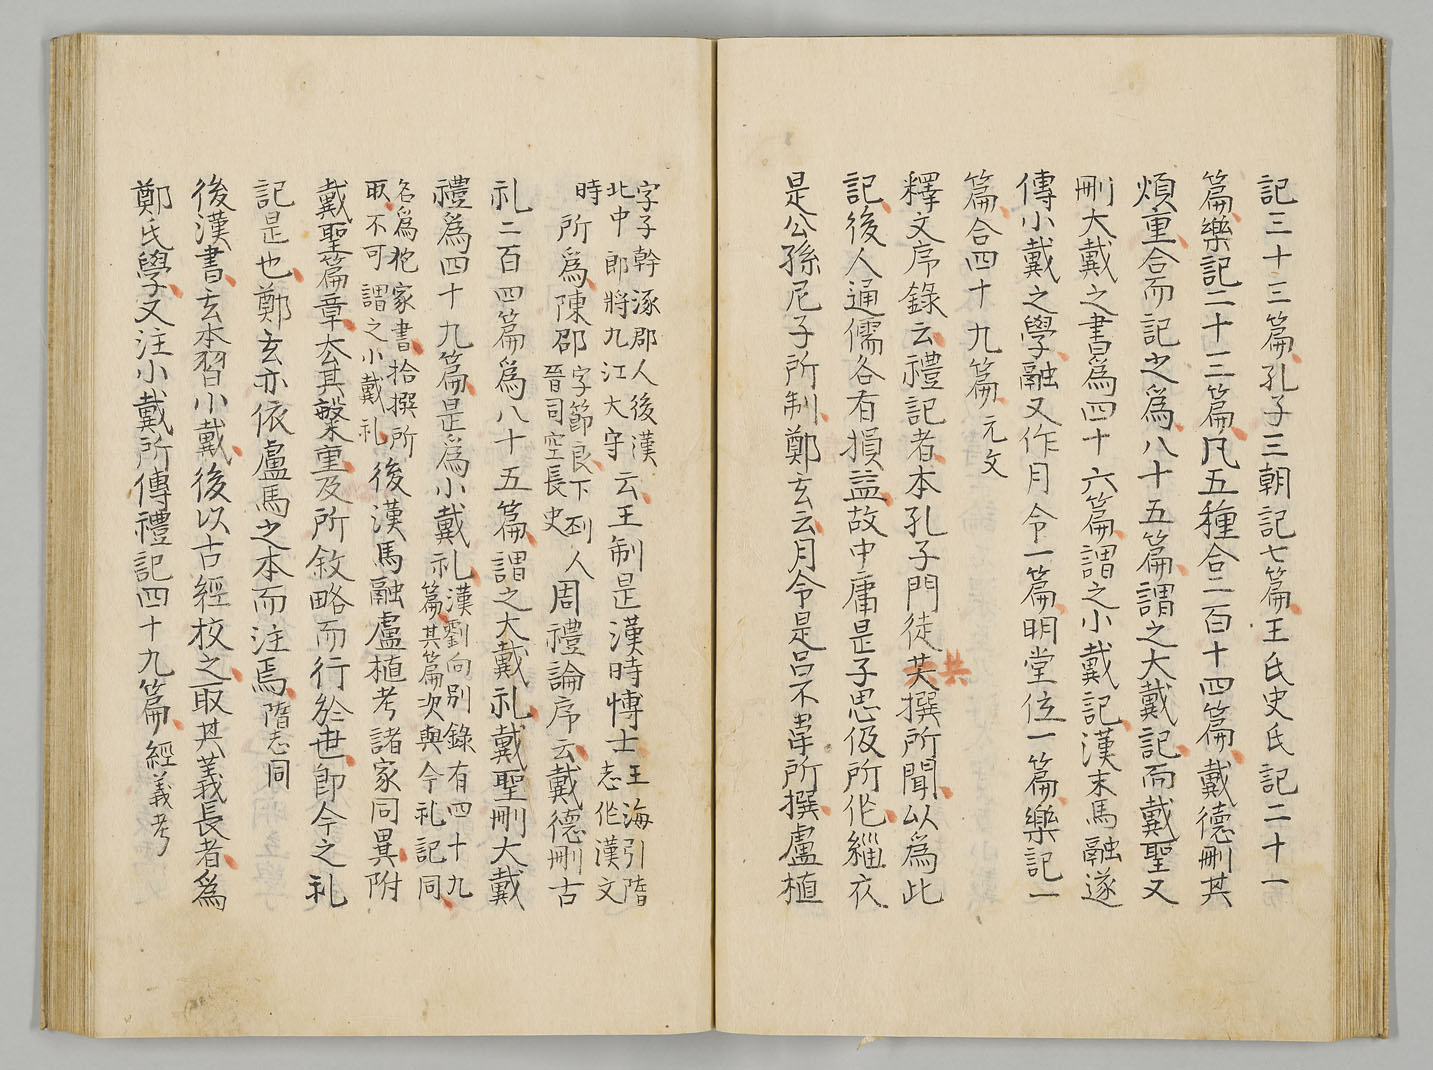 記三十三篇孔子三朝記七篇王氏史氏記二十一
篇樂記二十三篇凡五種合二百十四篇戴德刪其
煩重合而記之爲八十五篇謂之大戴記而戴聖又
刪大戴之書爲四十六篇謂之小戴記漢末馬融遂
傳小戴之學融又作月令一篇明堂位一篇樂記一
篇合四十九篇元文
釋文序錄云禮記者本孔子門徒共撰所聞以爲此
共
記後人通儒各有損益故中庸是子思伋所作緇衣
是公孫尼子所制鄭玄云月令是呂不韋所撰盧植
字子幹涿郡人後漢
北中郎將九江大守云王制是漢時愽士王海引隋
志作漢文
時所爲陳邵字節良下邳人
晉司空長史周禮論序云戴德刪古
礼二百四篇爲八十五篇謂之大戴礼戴聖刪大戴
禮爲四十九篇是爲小戴礼漢劉向別錄有四十九
篇其篇次與今礼記同
名爲他家書拾撰所
取不可謂之小戴礼後漢馬融盧植考諸家同異附
戴聖篇章去其繁重及所敘略而行於世即今之礼
記是也鄭玄亦依盧馬之本而注焉隋志同
後漢書玄本習小戴後以古經校之取其義長者爲
鄭氏學又注小戴所傳禮記四十九篇經義考